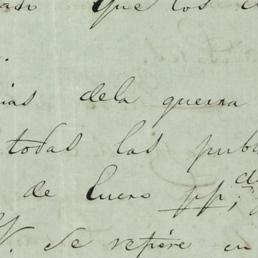 que los
.
ias dela guerra
todas las pub
de Enero pp;
V. se refiere en